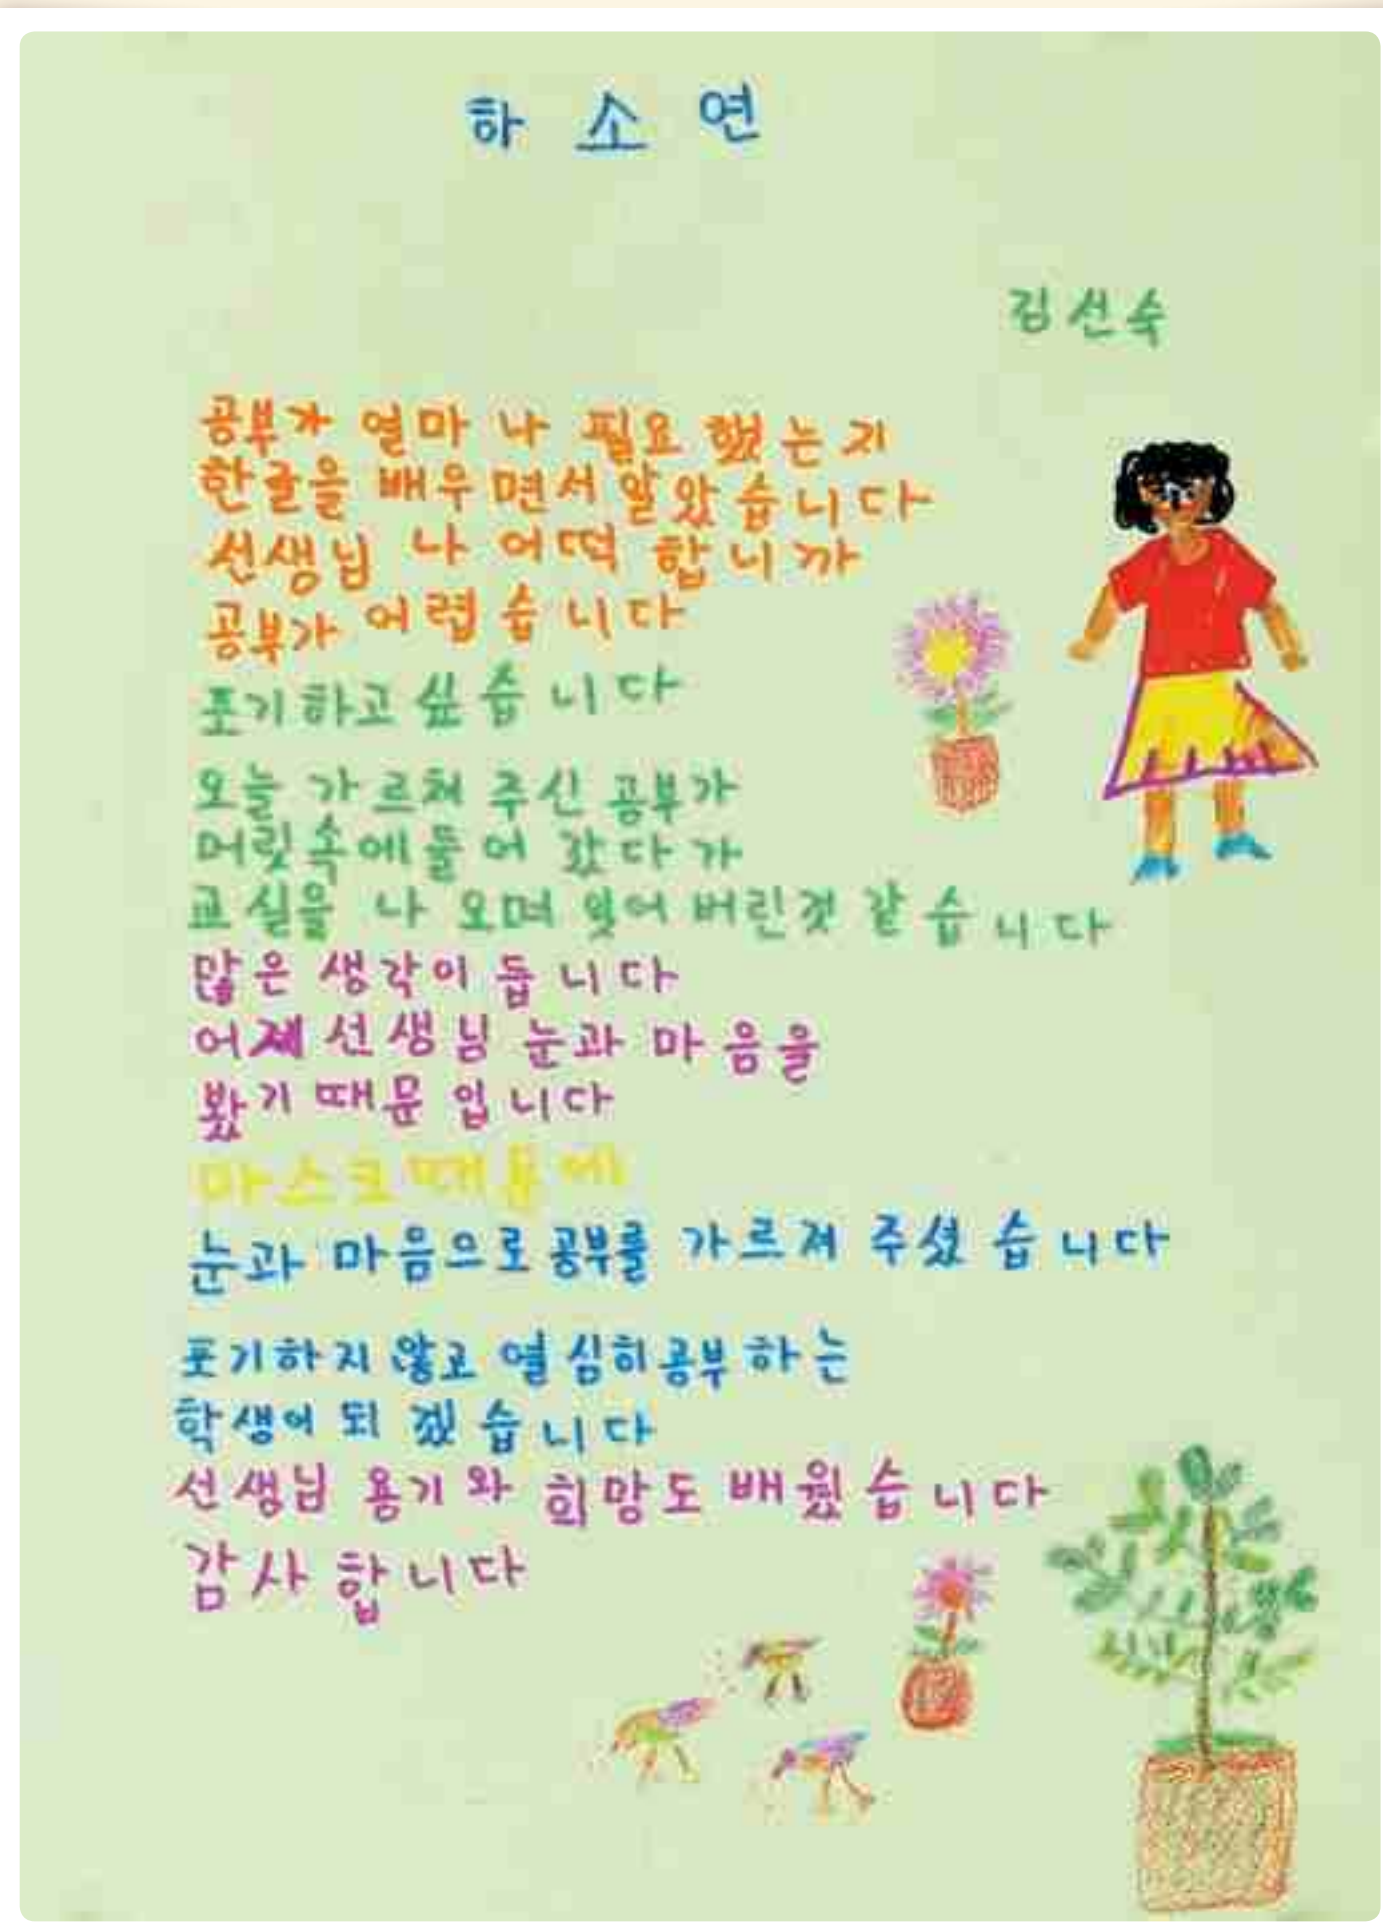 하소연
김선숙
공부가 얼마나 필요했는지
한글을 배우면서 알았습니다
선생님 나 어떡 합니까
공부가 어렵습니다
포기하고 싶습니다
오늘 가르쳐 주신 공부가
머릿속에 들어 갔다가
교실을 나오며 잊어 버린것 같습니다
많은 생각이 듭니다
어제 선생님 눈과 마음을
봤기 때문입니다
마스크 때문에
눈과 마음으로 공부를 가르쳐 주셨습니다
포기하지 않고 열심히 공부하는
학생이 되겠습니다
선생님 용기와 희망도 배웠습니다
감사합니다